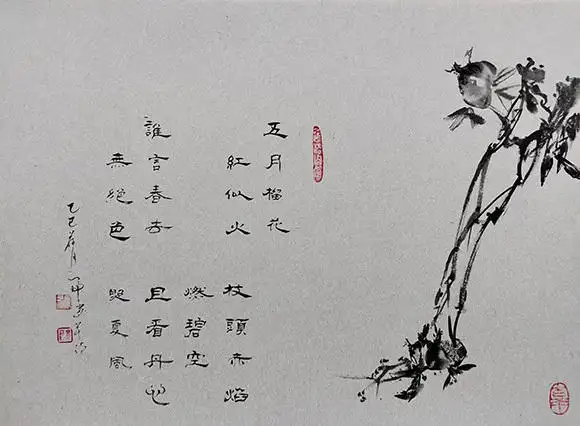 五月榴花
紅似火 枝頭赤焰
燃碧空
誰言春去 且看丹心
無絕色 映夏風
乙巳